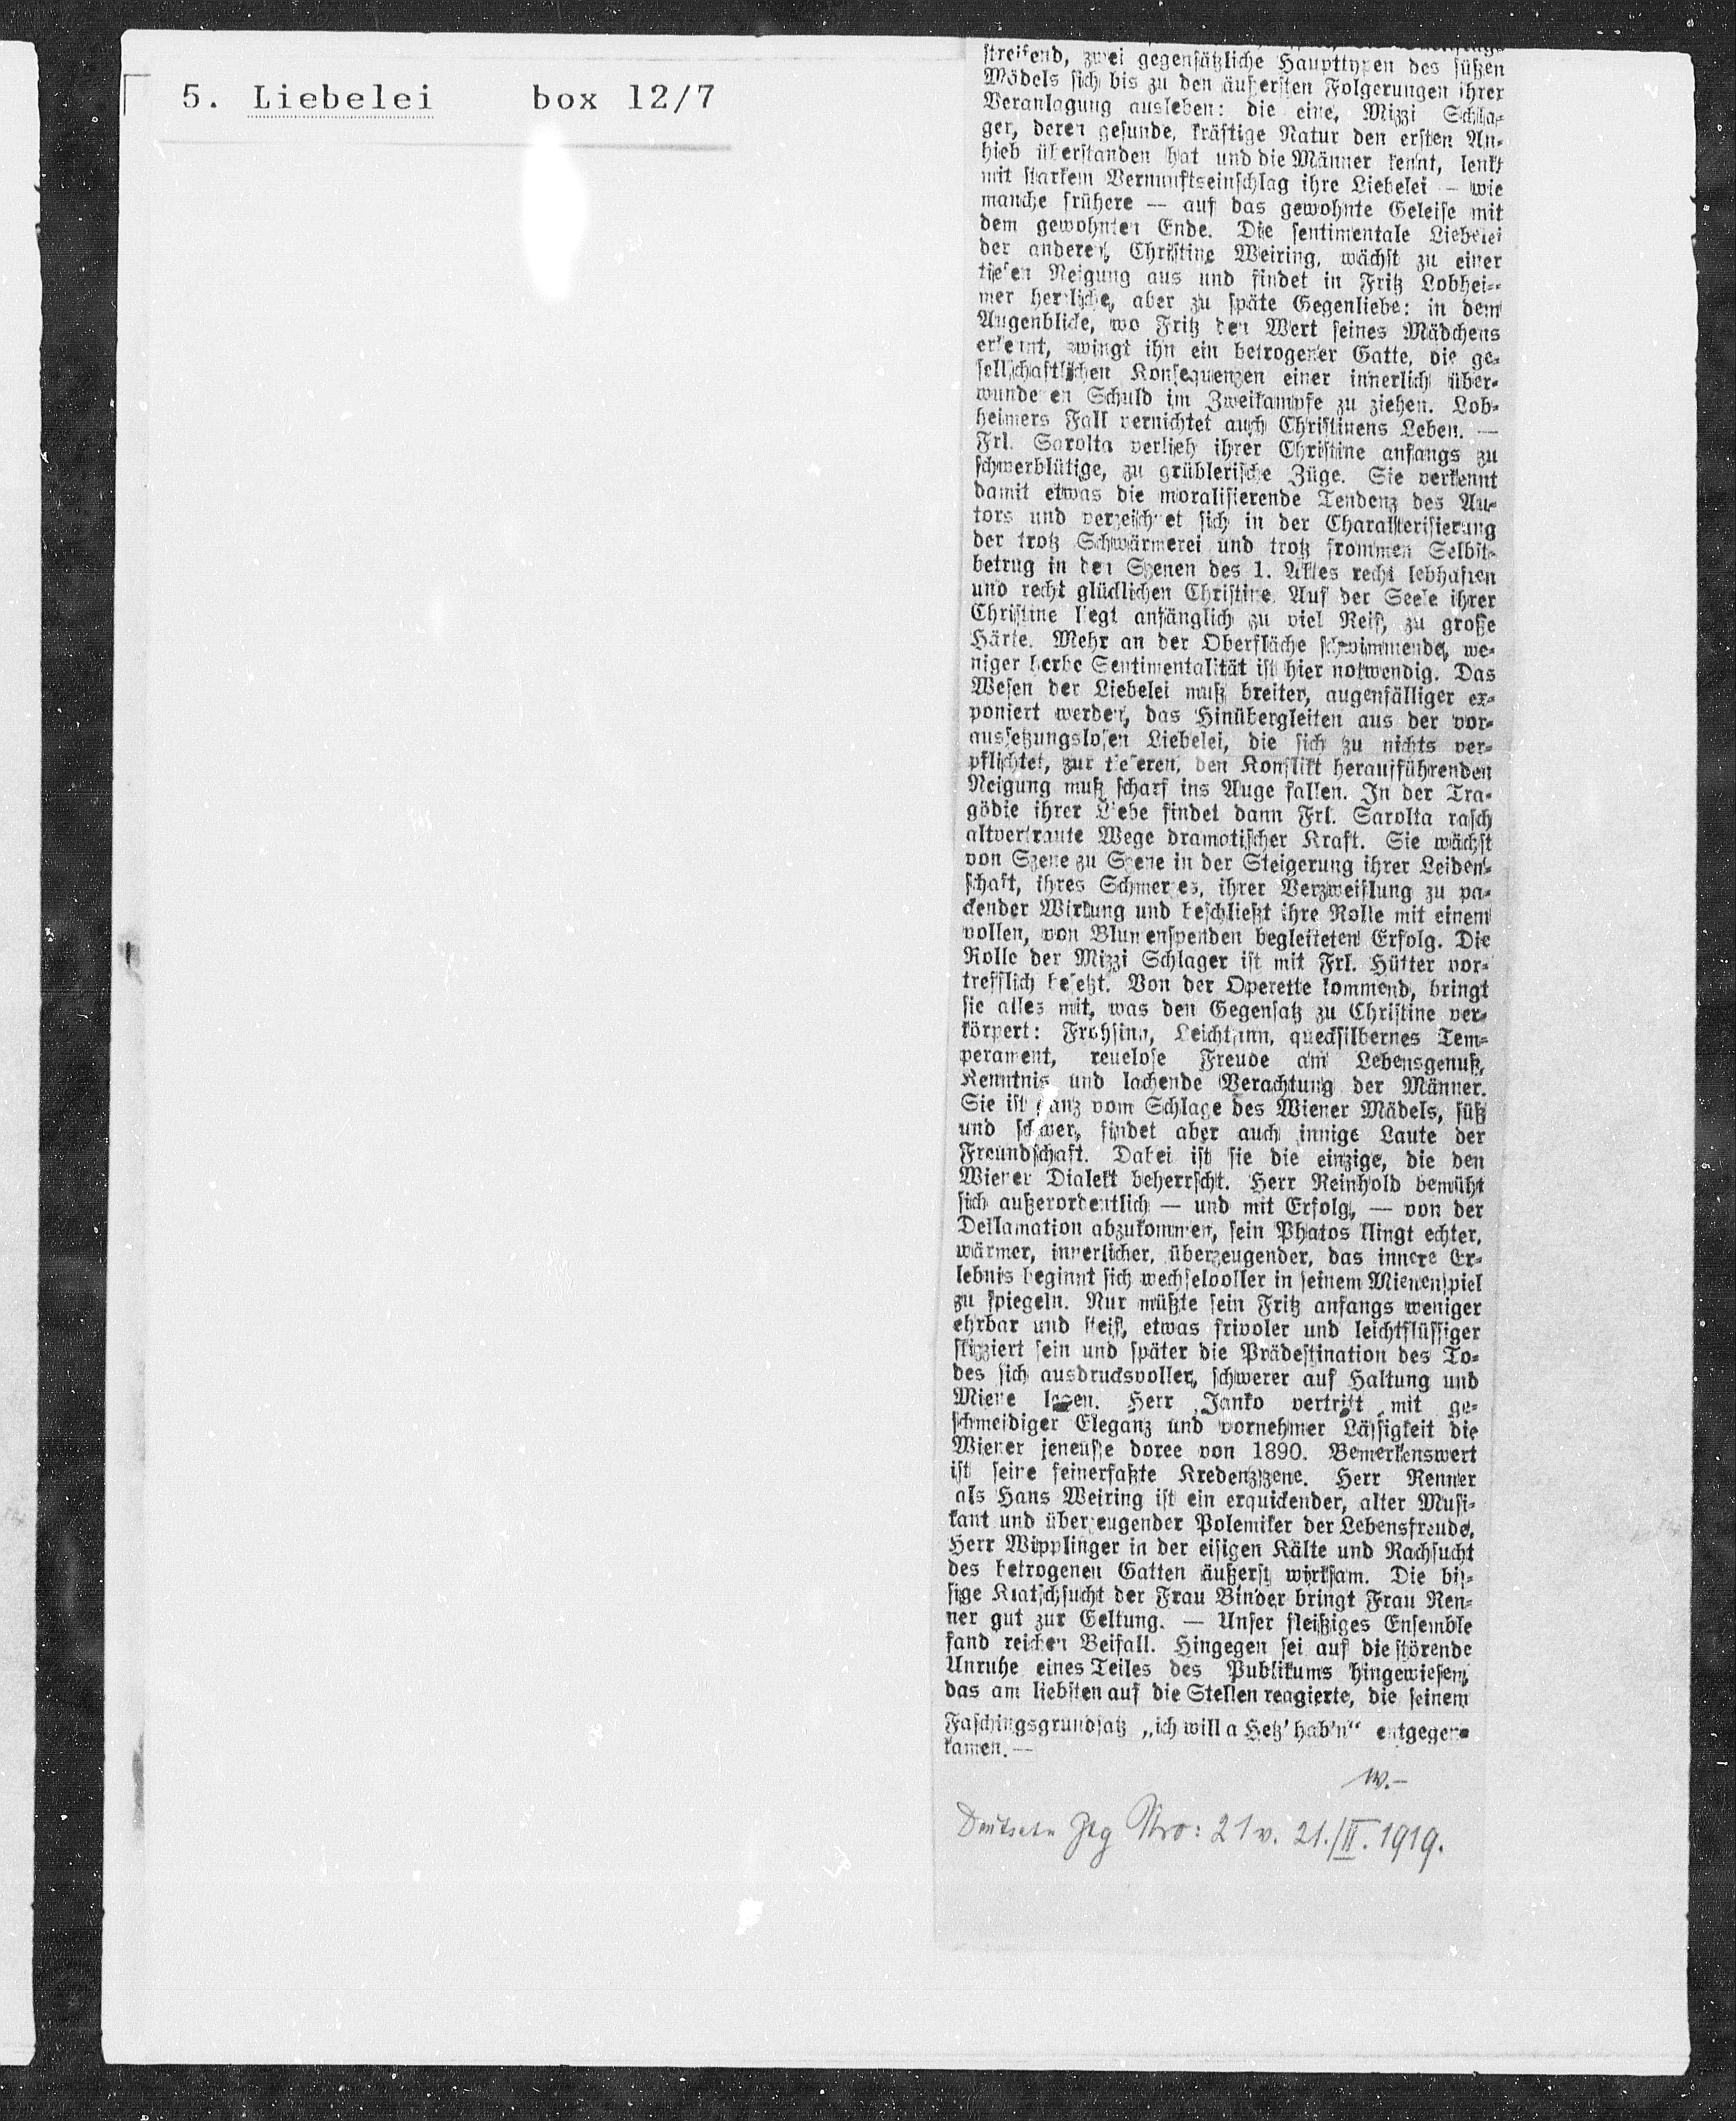 5. Liebelei box 12/7
streifend, zwei gegensätzliche Haupttypen des süßen
Mädels sich bis zu den äußersten Folgerungen ihrer
Veranlagung ausleben: die eine, Mizzi Schla-
ger, deren gesunde, kräftige Natur den ersten An-
hieb überstanden hat und die Männer kennt, lenkt
mit starkem Vernunftseinschlag ihre Liebelei — wie
manche frühere — auf das gewohnte Geleise mit
dem gewohnten Ende. Die sentimentale Liebelei
der anderen, Christine Weiring, wächst zu einer
tiefen Neigung aus und findet in Fritz Lobhei-
mer herzliche, aber zu späte Gegenliebe: in dem
Augenblicke, wo Fritz den Wert seines Mädchens
erkennt, zwingt ihn ein betrogener Gatte, die ge-
sellschaftlichen Konsequenzen einer innerlich über-
wundenen Schuld im Zweikampfe zu ziehen. Lob-
heimers Fall vernichtet auch Christinens Leben. —
Frl. Sarolta verlieh ihrer Christine anfangs zu
schwerblütige, zu grüblerische Züge. Sie verkennt
damit etwas die moralisierende Tendenz des Au-
tors und verzeichnet sich in der Charakterisierung
der trotz Schwärmerei und trotz frommen Selbst-
betrug in den Szenen des 1. Aktes recht lebhaften
und recht glücklichen Christine. Auf der Seele ihrer
Christine liegt anfänglich zu viel Reif, zu große
Härte. Mehr an der Oberfläche schwimmende, we-
niger herbe Sentimentalität ist hier notwendig. Das
Wesen der Liebelei muß breiter, augenfälliger ex-
poniert werden, das Hinübergleiten aus der vor-
aussetzungslosen Liebelei, die sich zu nichts ver-
pflichtet, zur tieferen, den Konflikt heraufführenden
Neigung muß scharf ins Auge fallen. In der Tra-
gödie ihrer Liebe findet dann Frl. Sarolta rasch
altvertraute Wege dramatischer Kraft. Sie wächst
von Szene zu Szene in der Steigerung ihrer Leiden-
schaft, ihres Schmerzes, ihrer Verzweiflung zu pa-
ckender Wirkung und beschließt ihre Rolle mit einem
vollen, von Blumenspenden begleiteten Erfolg. Die
Rolle der Mizzi Schlager ist mit Frl. Hütter vor-
trefflich besetzt. Von der Operette kommend, bringt
sie alles mit, was den Gegensatz zu Christine ver-
körpert: Frohsinn, Leichtsinn, quecksilbernes Tem-
perament, reuelose Freude am Lebensgenuß,
Kenntnis und lachende Verachtung der Männer.
Sie ist ganz vom Schlage des Wiener Mädels, süß
und schwer, findet aber auch innige Laute der
Freundschaft. Dabei ist sie die einzige, die den
Wiener Dialekt beherrscht. Herr Reinhold bemüht
sich außerordentlich — und mit Erfolg, — von der
Deklamation abzukommen, sein Phatos klingt echter,
wärmer, innerlicher, überzeugender, das innere Er-
lebnis beginnt sich wechselvoller in seinem Mienenspiel
zu spiegeln. Nur müßte sein Fritz anfangs weniger
ehrbar und steif, etwas frivoler und leichtflüssiger
skizziert sein und später die Prädestination des To-
des sich ausdrucksvoller, schwerer auf Haltung und
Miene legen. Herr Janko vertritt mit ge-
schmeidiger Eleganz und vornehmer Lässigkeit die
Wiener jeneusse doree von 1890. Bemerkenswert
ist seine feinerfaßte Kredenzszene. Herr Renner
als Hans Weiring ist ein erquickender, alter Musi-
kant und überzeugender Polemiker der Lebensfreude,
Herr Wipplinger in der eisigen Kälte und Rachsucht
des betrogenen Gatten äußerst wirksam. Die bis-
sige Klatschsucht der Frau Binder bringt Frau Ren-
ner gut zur Geltung. — Unser fleißiges Ensemble
fand reichen Beifall. Hingegen sei auf die störende
Unruhe eines Teiles des Publikums hingewiesen,
das am liebsten auf die Stellen reagierte, die seinem
Faschingsgrundsatz „ich will a Hetz' hab'n“ entgegen-
kamen. —
W.—
Deutsche Ztg Nro: 21 v. 21./II. 1919.